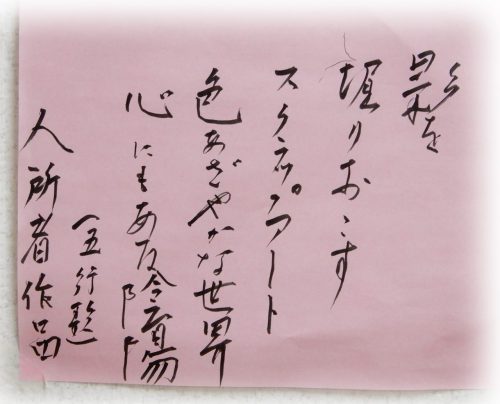 影を
堀りおこす
スクラップアート
色あざやかな世界
心にもある陰陽
(五行歌)
入所者作品